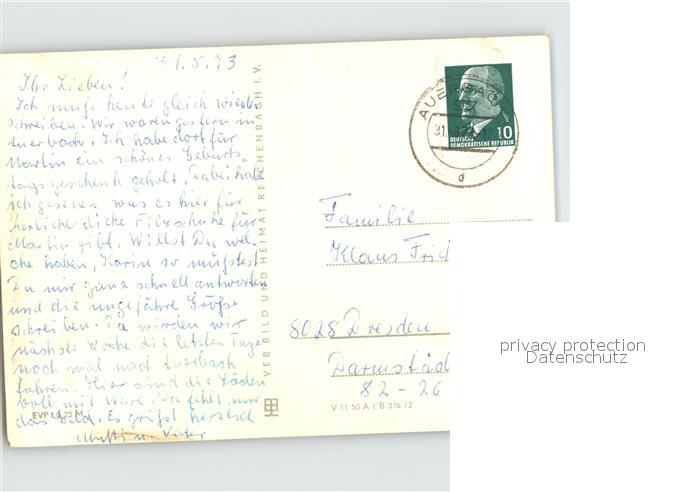 31.8.73
Ihr Lieben!
Ich muß heute gleich wieder
schreiben. Wir waren gestern in
Auerbach. Ich habe dort für
Martin ein schönes Geburts-
tagsgeschenk geholt. Dabei habe
ich gesehen was es hier für
herliche dicke Filzschuhe für
Martin gibt. Willst Du wel-
che haben, Karin so müßtest
Du mir ganz schnell antworten
und die ungefähre Größe
schreiben. Da würden wir
nächste Woche die letzten Tage
noch mal nach Auerbach
fahren. Hier sind die Läden
voll mit Ware. Da fehlt nur
das Geld. Es grüßt herzlich
Mutti u. Vater
EVP 0,25 M
VEB BILD UND HEIMAT REICHENBACH I. V.
AUERBACH
31.
d
10
DEUTSCHE
DEMOKRATISCHE REPUBLIK
Familie
Klaus
8028 Dresden
82-26
V 11 50 A 1 B 376/73
privacy protection
Datenschutz